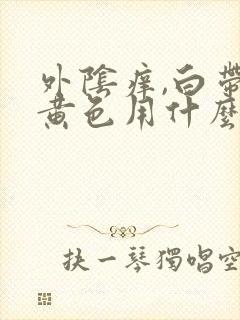 外陰痒,白帶
黃色用什麼
抉一琴獨唱空